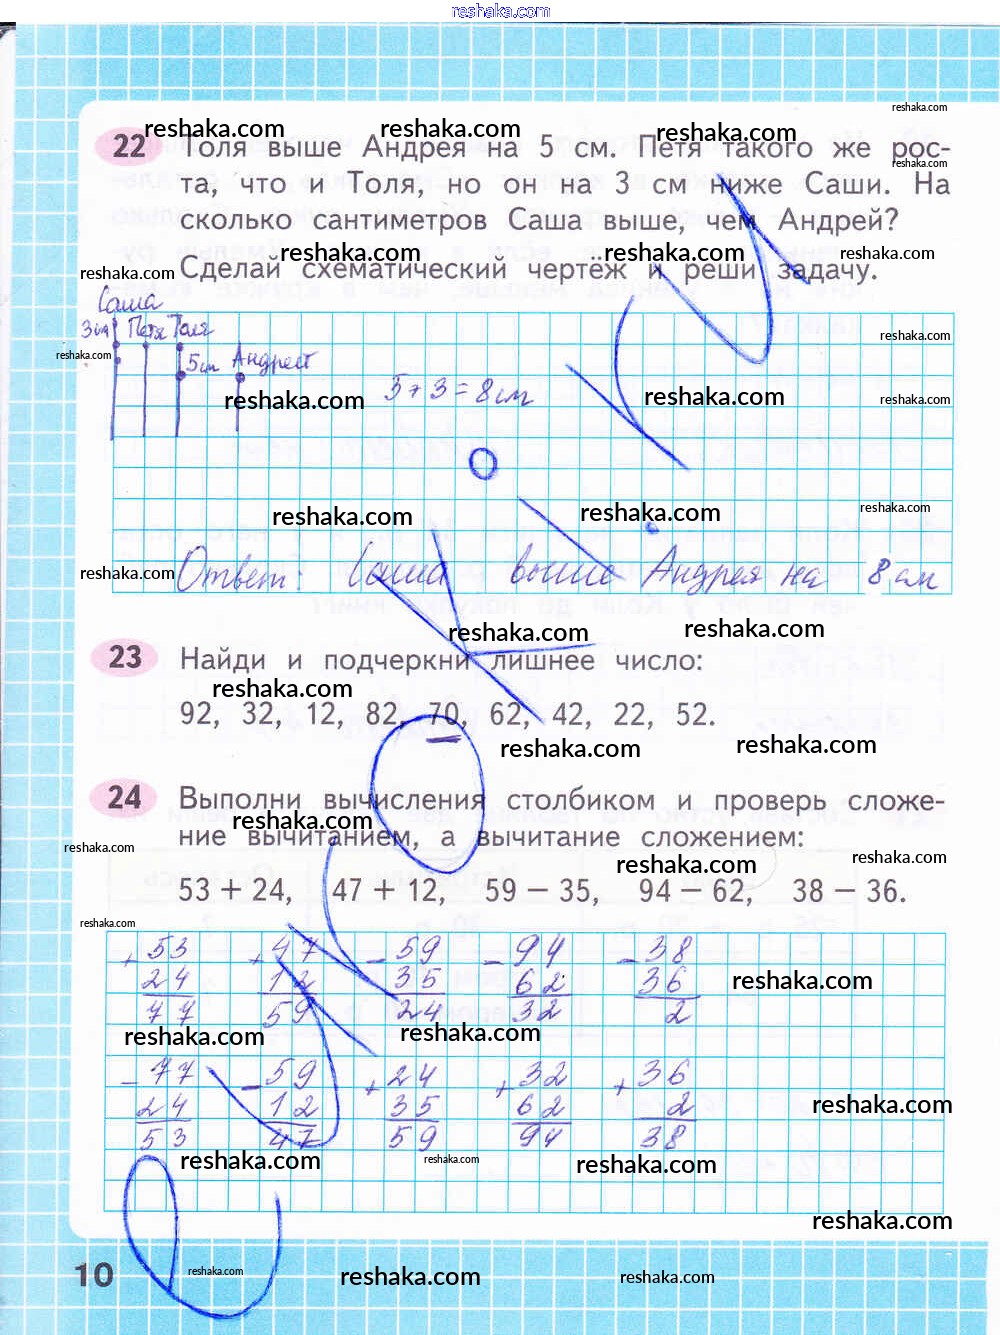 reshaka.com
reshaka.com
reshaka.com reshaka.com reshaka.com
22 Толя выше Андрея на 5 см. Петя такого же рос-
reshaka.com
та, что и Толя, но он на 3 см ниже Саши. На
сколько сантиметров Саша выше, чем Андрей?
reshaka.com reshaka.com reshaka.com
reshaka.com
Сделай схематический чертёж и реши задачу.
Саша
3см Петя Толя
reshaka.com
reshaka.com 5см Андрей
5+3=8см
reshaka.com reshaka.com reshaka.com
reshaka.com reshaka.com reshaka.com
reshaka.com Ответ: Саша выше Андрея на 8 см
reshaka.com reshaka.com
23 Найди и подчеркни лишнее число:
reshaka.com
92, 32, 12, 82, 70, 62, 42, 22, 52.
reshaka.com reshaka.com
24 Выполни вычисления столбиком и проверь сложе-
reshaka.com
ние вычитанием, а вычитание сложением:
reshaka.com reshaka.com reshaka.com
53 + 24, 47 + 12, 59 − 35, 94 − 62, 38 − 36.
reshaka.com
+ 53 + 47 − 59 − 94 − 38
24 12 35 62 36
reshaka.com
77 59 24 32 2
reshaka.com reshaka.com
− 77 − 59 + 24 + 32 + 36
24 12 35 62 2
reshaka.com
53 47 59 94 38
reshaka.com reshaka.com reshaka.com
reshaka.com
10 reshaka.com reshaka.com reshaka.com